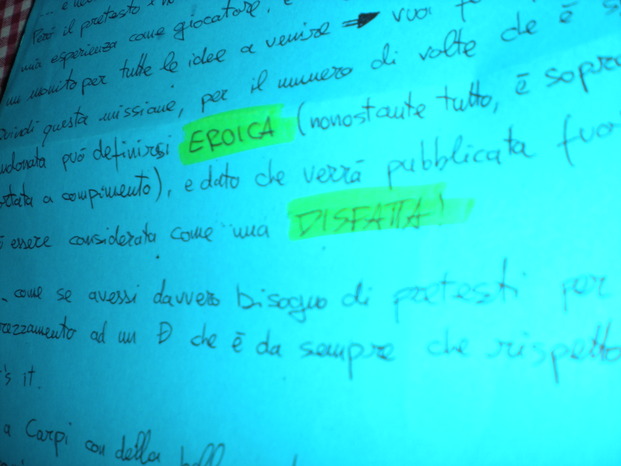 Però il pretesto
mia esperienza come giocatore, e
un monito per tutte le idee a venire → vuoi
Quindi questa missione, per il numero di volte che è
può definirsi EROICA (nonostante tutto, è
a compimento), e dato che verrà pubblicata
essere considerata come una DISFATTA!
come se avessi davvero bisogno di pretesti per
ad un Đ che è da sempre che rispetto
's it.
a Carpi con della